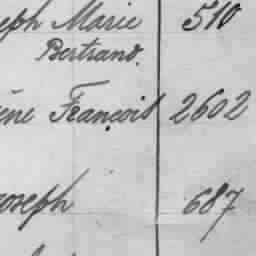 eph Marie 510
Bertrand.
ène François 2602
oseph 687